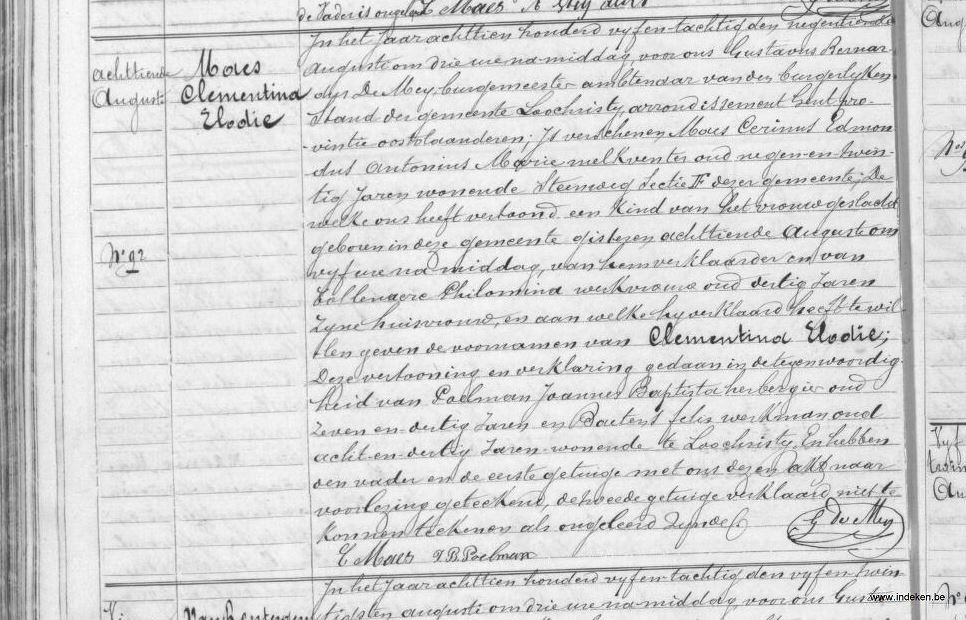 de Vader is ongeleerd E Maes A
In het Jaar achttien honderd vyf en-tachtig den negentienden
Augusti om drie ure na-middag voor ons Gustavus Bernar-
dus De Mey, burgemeester ambtenaar van den burgerlyken
Stand der gemeente Loochristy, arrondissement Gent, pro-
vintie oostvlaanderen; Is verschenen, Maes Cerinus Edmon
dus Antonius Marie melkventer oud negen-en-twin-
tig Jaren wonende Steenweg Sectie F dezer gemeente; De
welke ons heeft vertoond een Kind van het vrouwgeslacht
geboren in deze gemeente gisteren achttiende Augusti om
vyf ure na middag, van hem verklaarder en van
Collenaere Philomina werkvrouw oud dertig Jaren
Zyne huisvrouw, en aan welke hy verklaard heeft te wil-
len geven de voornamen van Clementina Elodie;
Deze vertooning en verklaring gedaan in de tegenwoordig-
heid van Poelman Joannes Baptista herbergier oud
Zeven en-dertig Jaren en Bautens felix werkman oud
acht en-dertig Jaren wonende te Loochristy, En hebben
den vader en de eerste getuige met ons dezen akt naar
voorlezing geteekend, de tweede getuige verklaard niet te
Konnen teekenen als ongeleerd Zynde
G De Mey
E Maes J.B. Poelman
achttiende
August:
Maes
Clementina
Elodie
N° 92
In het Jaar achttien honderd vyf en-tachtig den vyf en-twin-
tigsten augusti om drie ure na-middag, voor ons Gusta
Aug
N°
Vyf
Au
N°
www.indeken.be